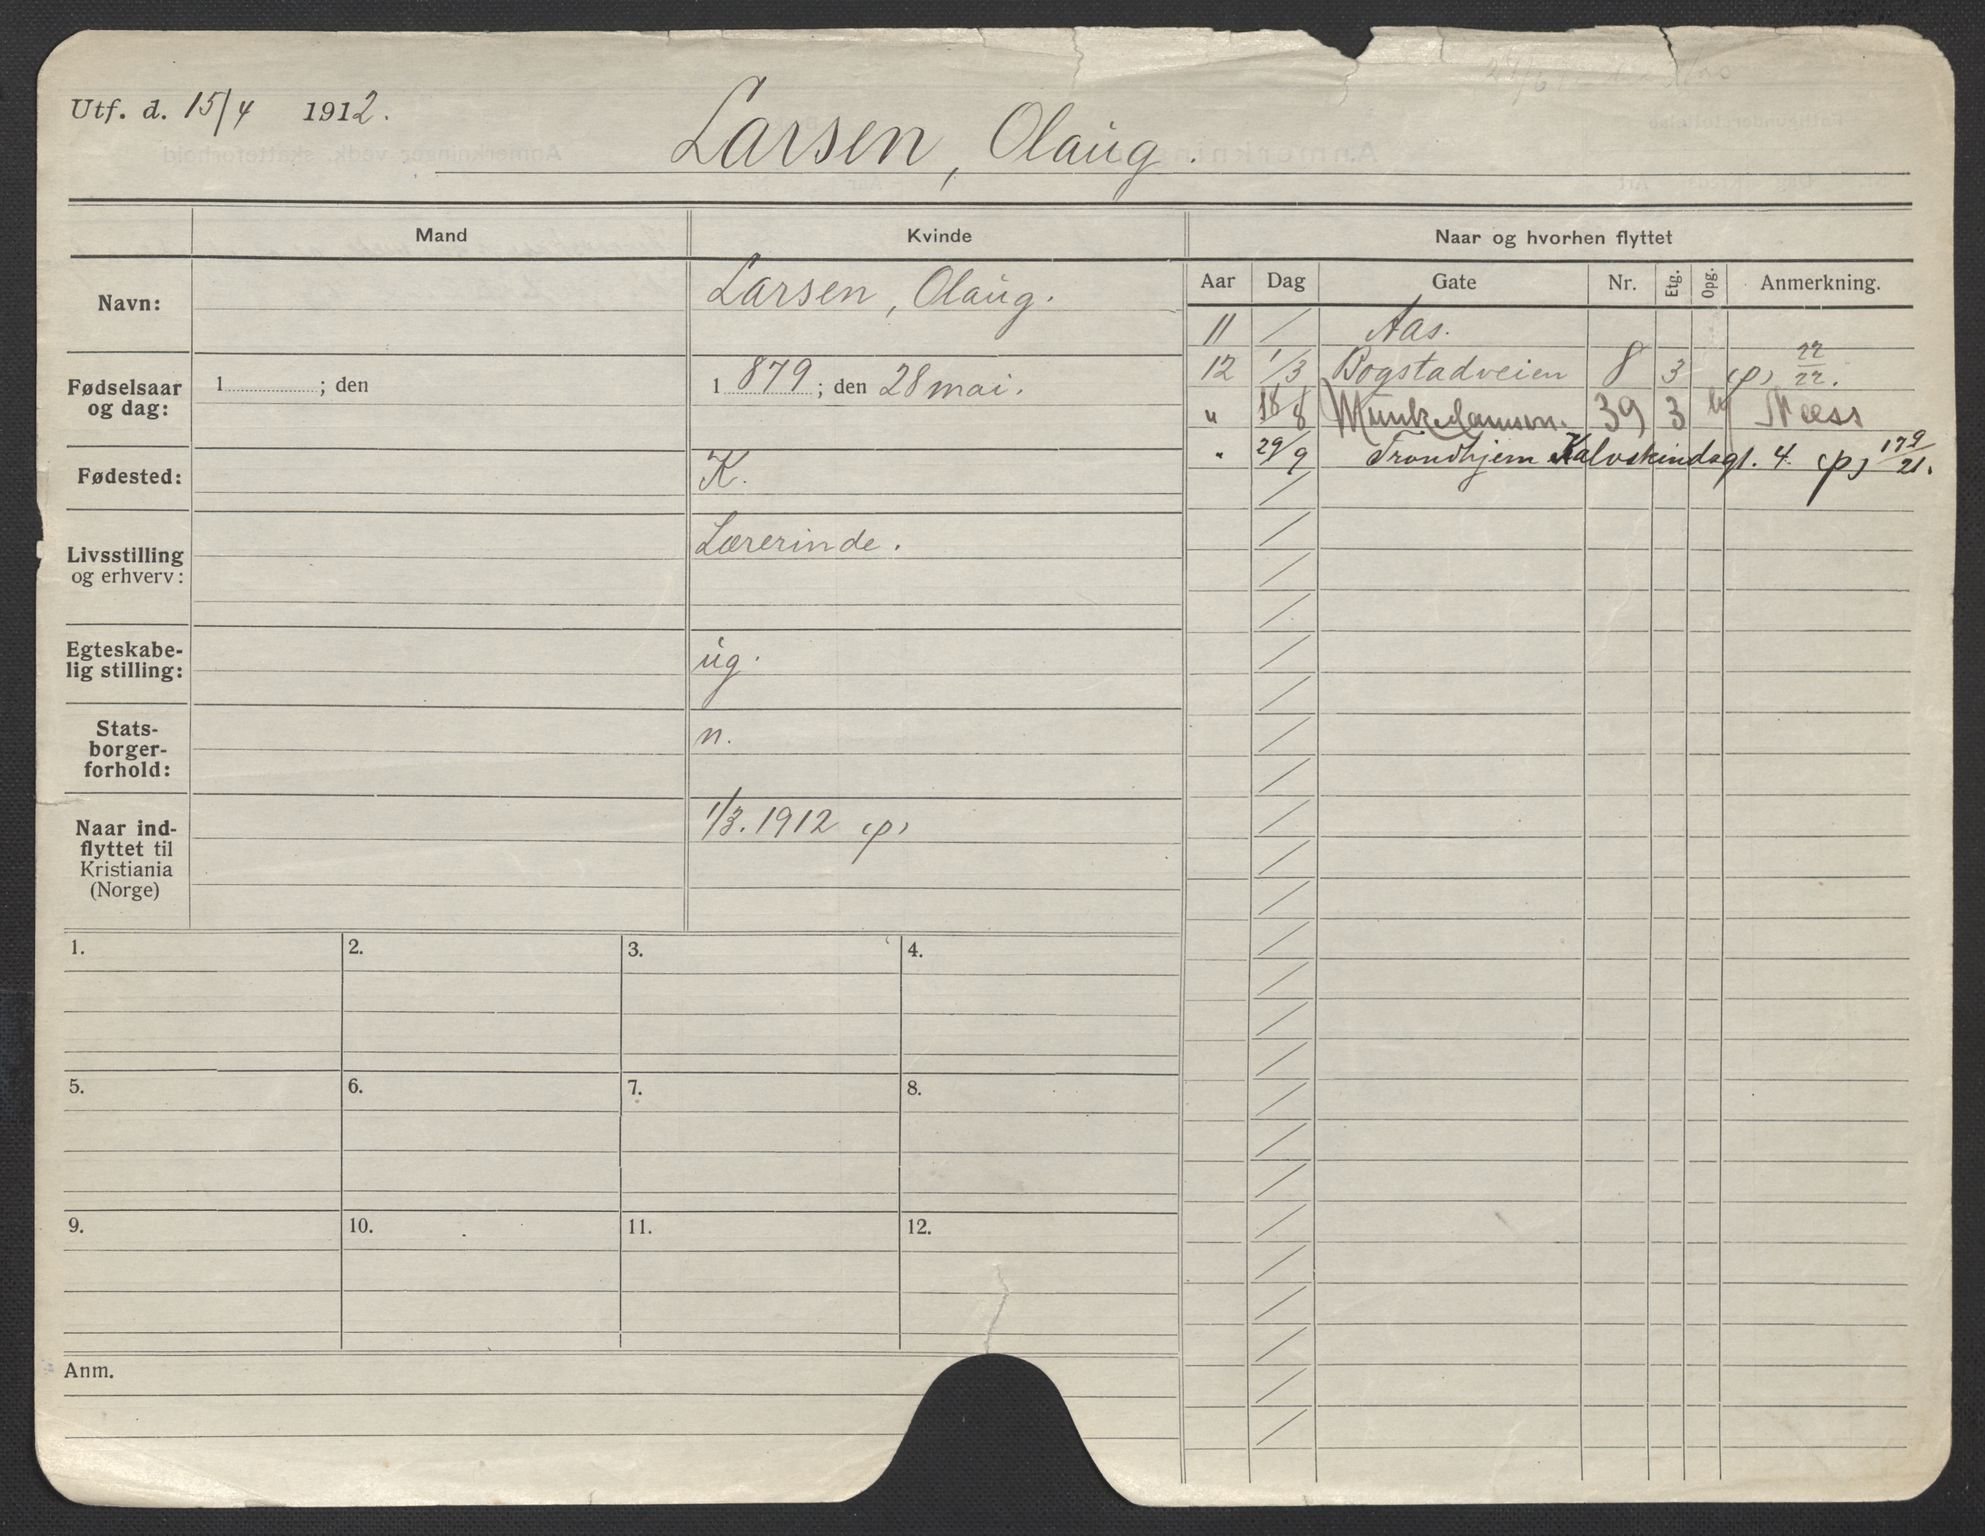 Utf. d. 15/4 1912.
Larsen, Olaug.
Mand
Kvinde
Naar og hvorhen flyttet
Navn:
Larsen, Olaug.
Fødselsaar og dag:
1 ; den
1 879 ; den 28 mai.
Fødested:
K.
Livsstilling og erhverv:
Lærerinde.
Egteskabe-
lig stilling:
ug.
Stats-
borger-
forhold:
n.
Naar ind-
flyttet til
Kristiania
(Norge)
1/3. 1912 (p)
Aar Dag Gate Nr. Etg. Opg. Anmerkning.
11 / Aas.
12 1/3 Bogstadveien 8 3 (p) 22/22.
" 18/8 Munkedamsvn. 39 3 Næss
" 29/9 Trondhjem Kalvskindsgt. 4. (p) 179/21.
1. 2. 3. 4.
5. 6. 7. 8.
9. 10. 11. 12.
Anm.